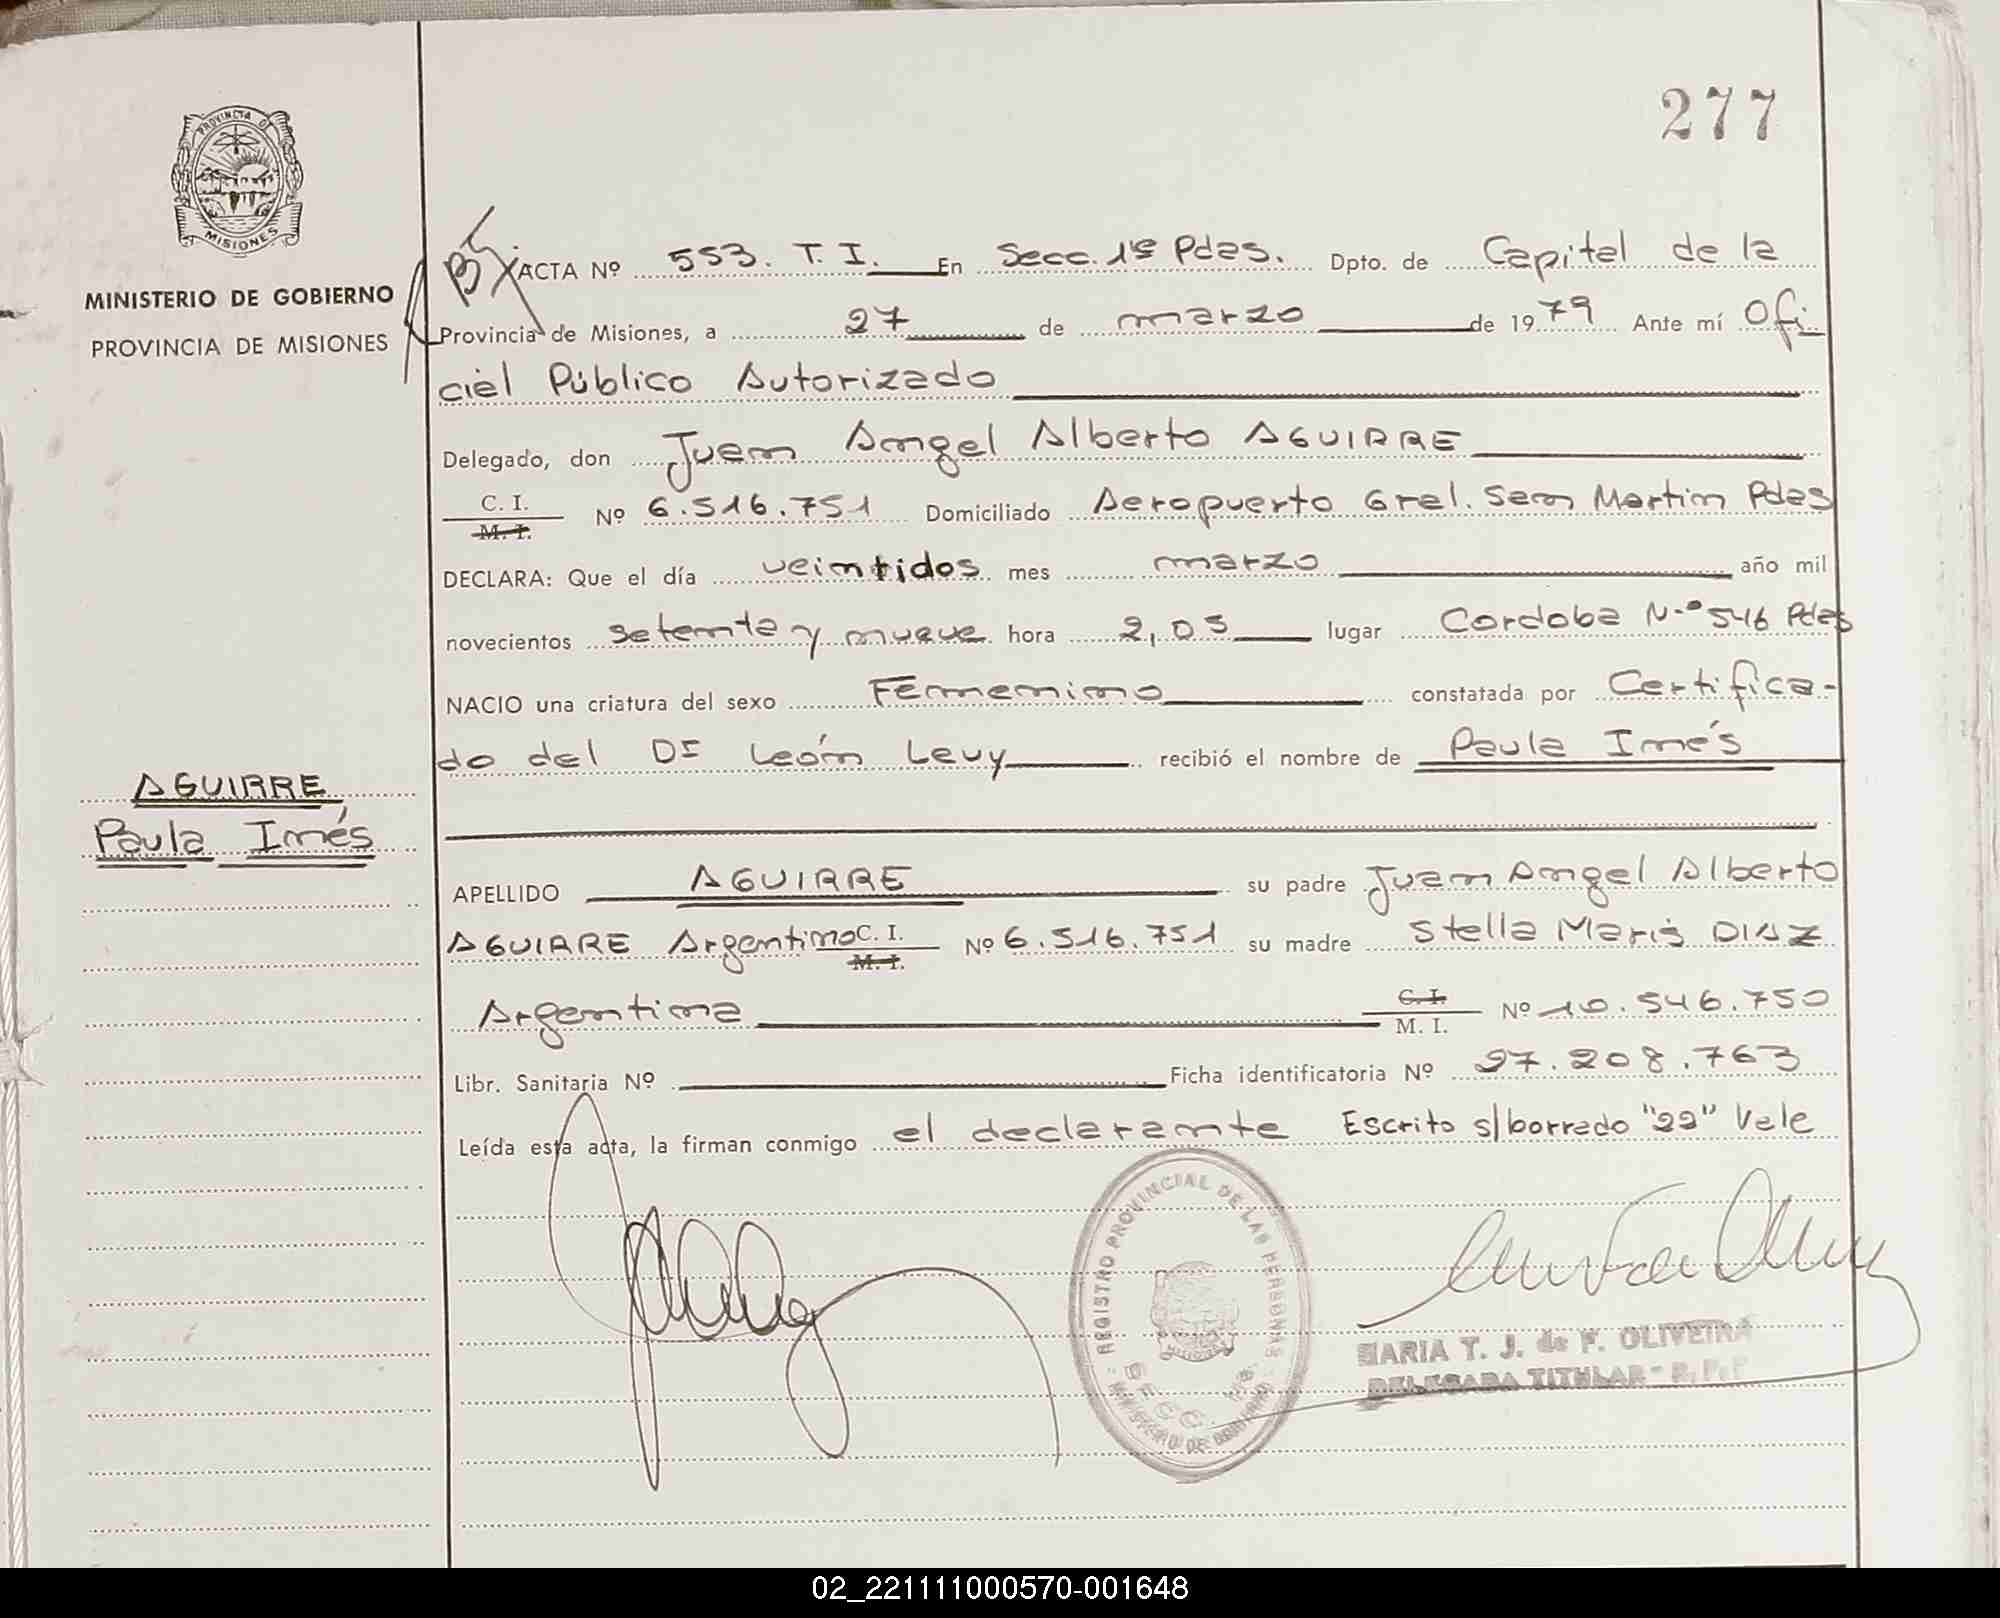 277
PROVINCIA D
MISIONES
MINISTERIO DE GOBIERNO
PROVINCIA DE MISIONES
ACTA Nº 553. T. I. En Secc. 1ª Pdas. Dpto. de Capital de la
Provincia de Misiones, a 27 de marzo de 1979 Ante mí Ofi
cial Público Autorizado
Delegado, don Juan Angel Alberto AGUIRRE
C. I.
M. I. Nº 6.516.751 Domiciliado Aeropuerto Gral. San Martin Pdas
DECLARA: Que el día veintidos mes marzo año mil
novecientos setenta y nueve hora 2,05 lugar Cordoba N-º 546 Pdas
NACIO una criatura del sexo Femenino constatada por Certifica-
do del Dr León Levy recibió el nombre de Paula Inés
AGUIRRE
Paula Inés
APELLIDO AGUIRRE su padre Juan Angel Alberto
AGUIRRE Argentino C. I.
M. I. Nº 6.516.751 su madre Stella Maris DIAZ
Argentina C. I.
M. I. Nº 10.546.750
Libr. Sanitaria Nº Ficha identificatoria Nº 27.208.763
Leída esta acta, la firman conmigo el declarante Escrito s/borrado "22" Vale
REGISTRO PROVINCIAL DE LAS PERSONAS
SECC.
MINISTERIO DE GOBIERNO
MARIA T. J. de F. OLIVEIRA
DELEGADA TITULAR - R. P. P
02_221111000570-001648